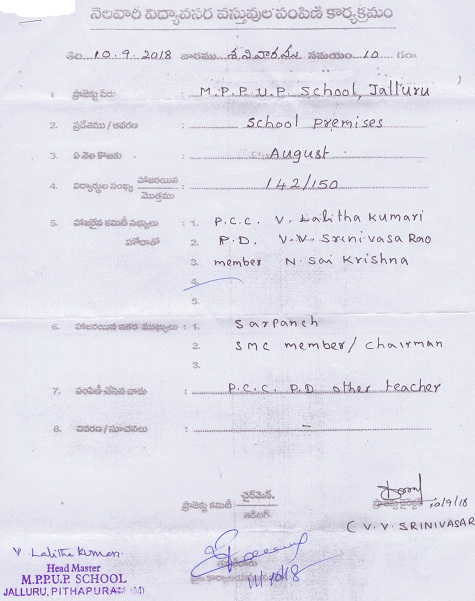 నెలవారీ విద్యావసర వస్తువుల పంపిణి కార్యక్రమం
తేది 10.9.2018 వారము శనివారము సమయం 10 గం
1. ప్రాజెక్టు పేరు : M.P.P.U.P School, Jalluru
2. ప్రదేశము / ఆవరణ : School premises
3. ఏ నెల కొరకు : August
4. విద్యార్థుల సంఖ్య హాజరయిన / మొత్తము : 142/150
5. హాజరైన కమిటీ సభ్యులు : 1. P.C.C. V. Lalitha Kumari
హోదాతో 2. P.D. V.V. Srinivasa Rao
3. member N. Sai Krishna
4.
5.
6. హాజరయిన ఇతర ముఖ్యులు : 1. Sarpanch
2. SMC member / Chairman
3.
7. పంపిణీ చేసిన వారు : P.C.C. P.D other teacher
8. వివరణ / సూచనలు : –
ప్రాజెక్టు కమిటీ ఛైర్మెన్. ప్రాజెక్టు డైరెక్టర్ 10/9/18
(V.V. SRINIVASAR
V. Lalitha Kumari.
Head Master
M.P.P.U.P. SCHOOL
JALLURU, PITHAPURAM (M)
11/10/18